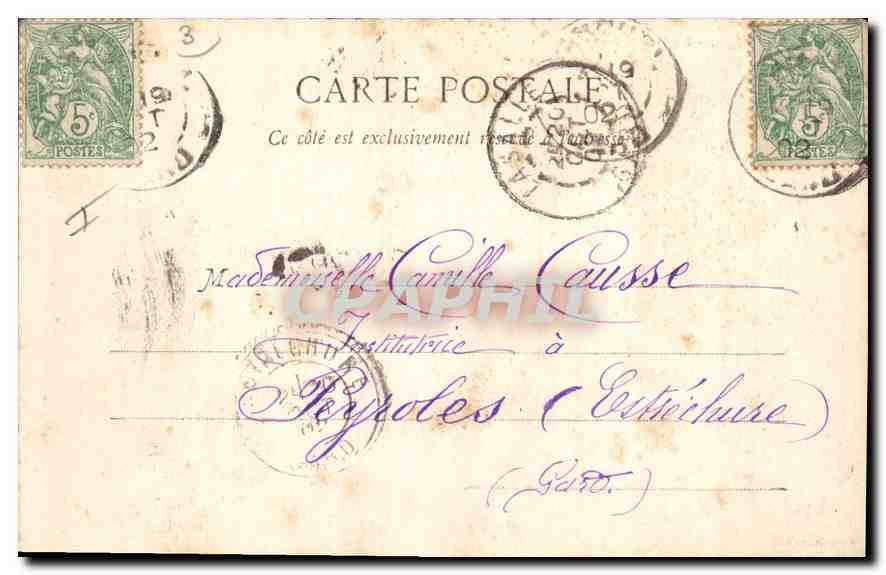 3
5c
POSTES
CARTE POSTALE
Ce côté est exclusivement réservé à l'adresse
5c
POSTES
Mademoiselle Camille Causse
CPAPHIL
Institutrice à
Peyroles (Estréchure)
(Gard.)